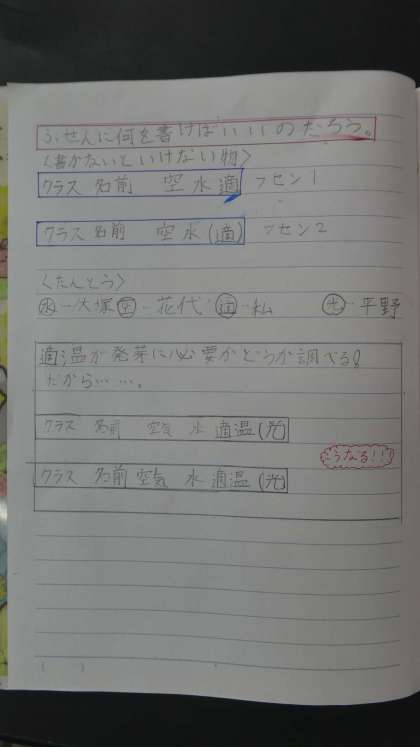 ふせんに何を書けばいいのだろう。
〈書かないといけない物〉
クラス 名前 空 水 適 フセン1
クラス 名前 空 水 (適) フセン2
〈たんとう〉
水…大塚 空…花代 適…私 光…平野
適温が発芽に必要かどうか調べる!
だから……。
クラス 名前 空気 水 適温(光)
うなる!!
クラス 名前 空気 水 適温(光)